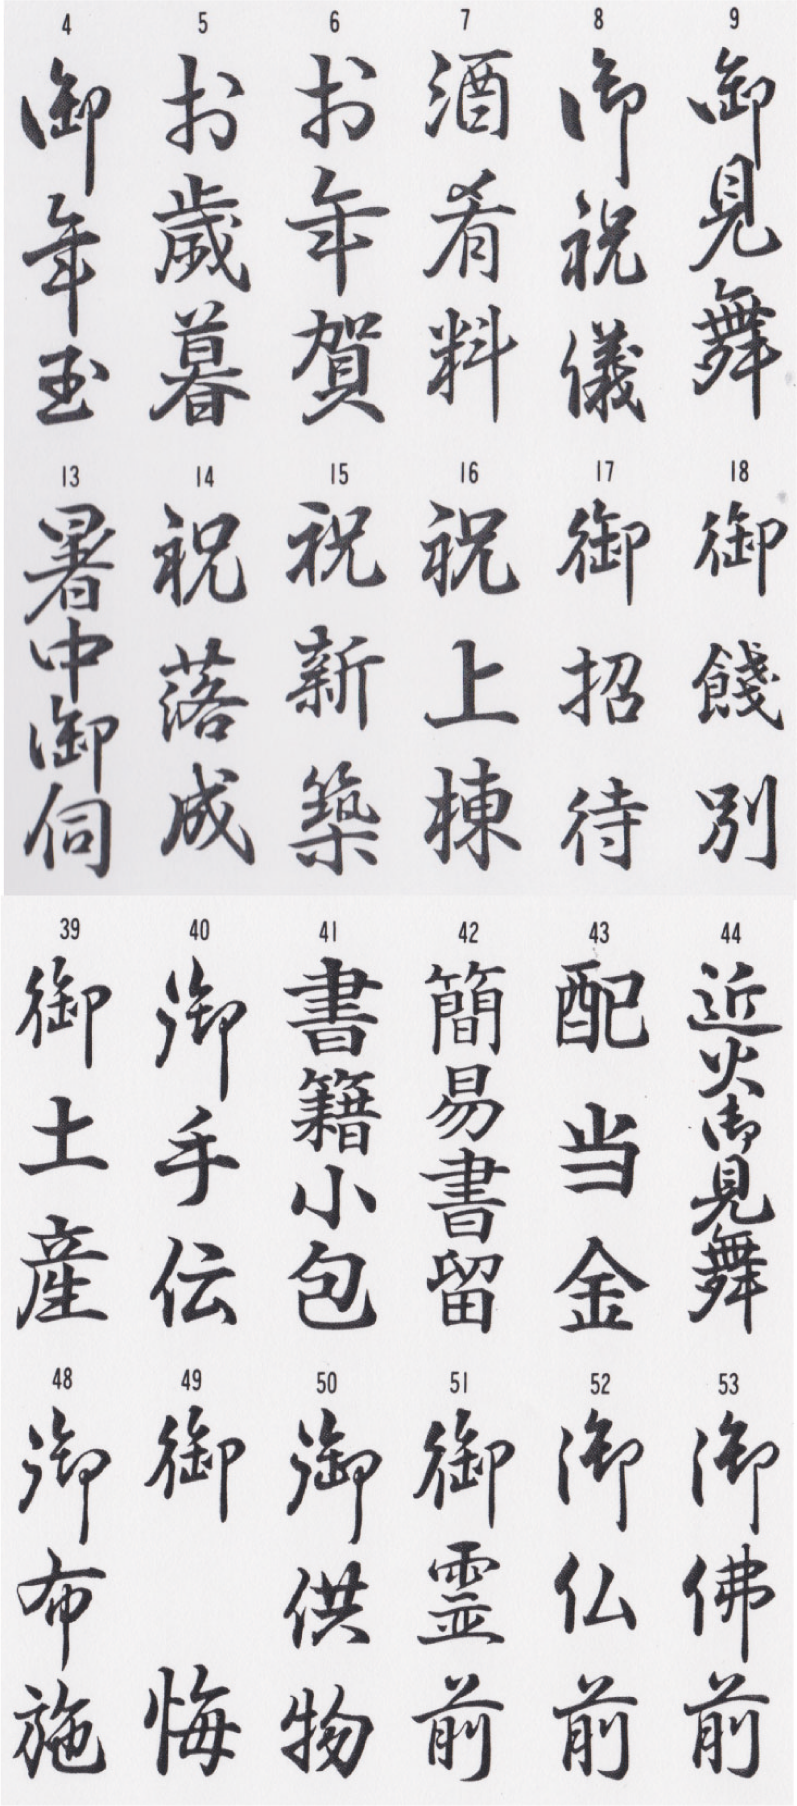 4
御年玉
5
お歳暮
6
お年賀
7
酒肴料
8
御祝儀
9
御見舞
13
暑中御伺
14
祝落成
15
祝新築
16
祝上棟
17
御招待
18
御餞別
39
御土産
40
御手伝
41
書籍小包
42
簡易書留
43
配当金
44
近火御見舞
48
御布施
49
御悔
50
御供物
51
御霊前
52
御仏前
53
御佛前